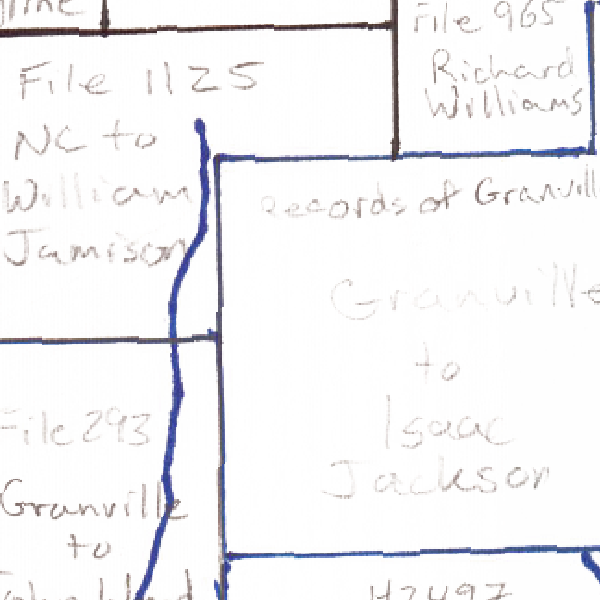 File 965
Richard
Williams
File 1125
NC to
William
Jamison
Records of Granvill
Granville
to
Isaac
Jackson
File 293
Granville
to
H2497